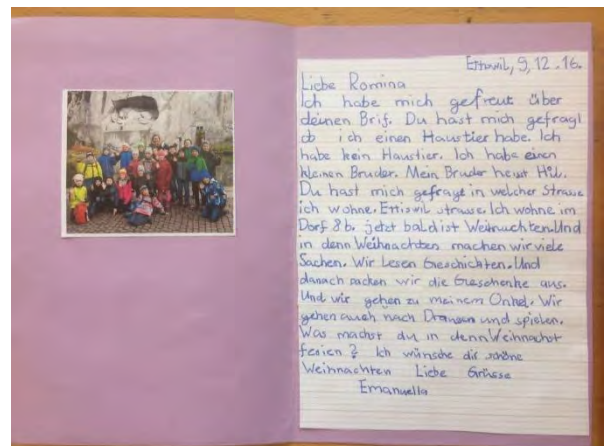 Ettiswil, 9,12.16.
Liebe Romina
Ich habe mich gefreut über
deinen Brif. Du hast mich gefragt
ob ich einen Haustier habe. Ich
habe kein Haustier. Ich habe einen
kleinen Bruder. Mein Bruder heist
Du hast mich gefragt in welcher Strasse
ich wohne. Ettiswil strasse. Ich wohne im
Dorf 8b. jetzt bald ist Weihnachten. Und
in denn Weihnachten machen wir viele
Sachen. Wir Lesen Geschichten. Und
danach packen wir die Geschenke aus.
Und wir gehen zu meinem Onkel. Wir
gehen auch nach Draussen und spielen.
Was machst du in denn Weihnachst
ferien? Ich wünsche dir schöne
Weihnachten Liebe Grüsse
Emanuella